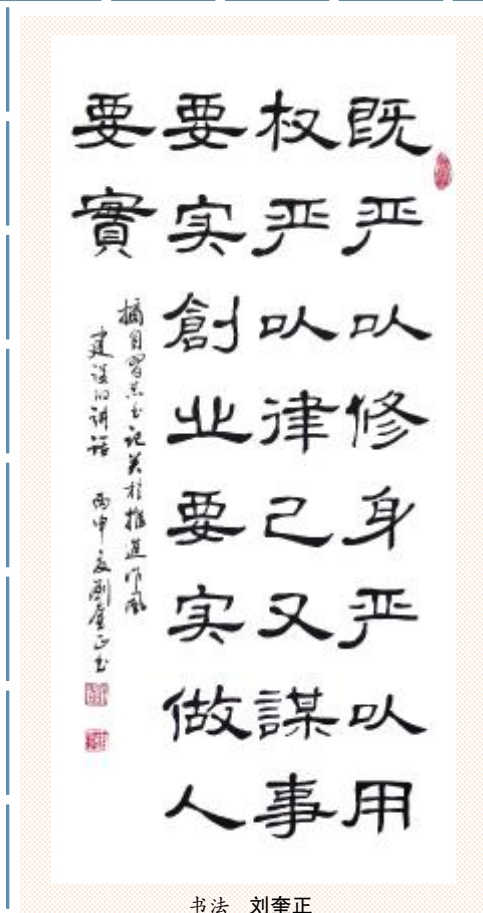 既严以修身严以用
权严以律己又謀事
要实創业要实做人
要實
摘自習总书记关于推进作风
建设的讲话 丙申夏劉奎正书
书法 刘奎正